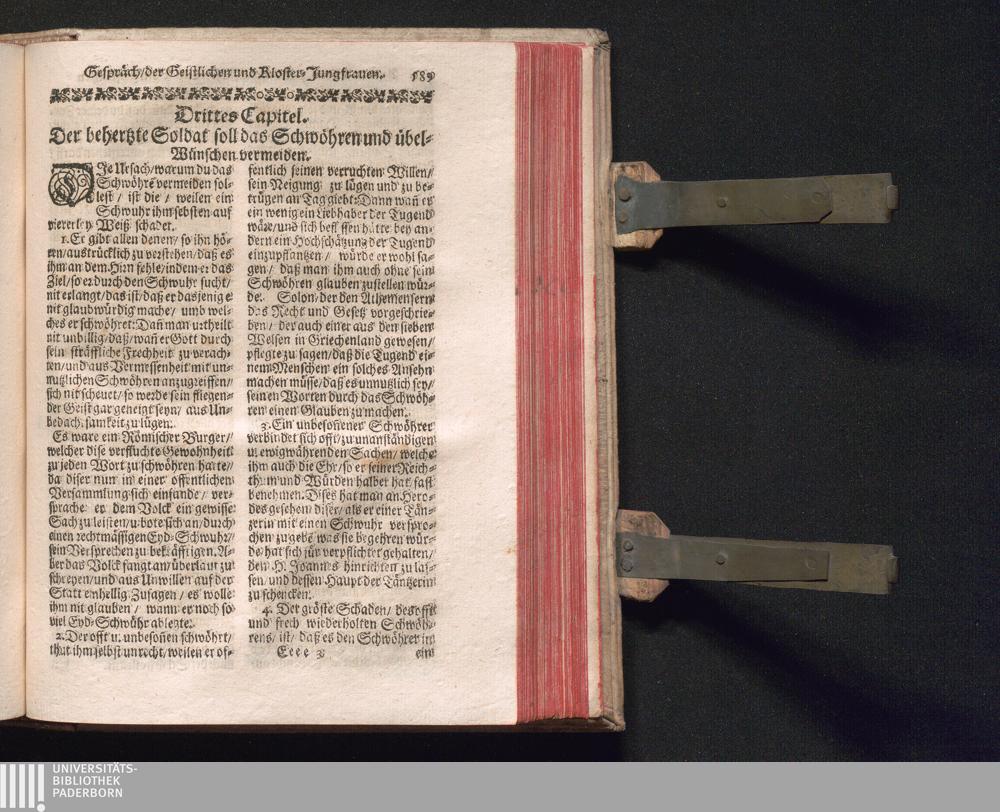 Gespräch/der Geistlichen und Kloster-Jungfrauen. 589
Drittes Capitel.
Der behertzte Soldat soll das Schwöhren und übel-
Wünschen vermeiden.
DIe Ursach/warum du das
Schwöhrē vermeiden sol-
lest/ ist die/ weilen ein
Schwuhr ihm selbsten auf
viererley Weiß schadet.
1. Er gibt allen denen/ so ihn hö-
ren/austrücklich zu verstehen/daß es
ihm an dem Hirn fehle/indem er das
Ziel/so er durch den Schwuhr sucht/
nit erlangt/das ist/daß er dasjenige
nit glaubwürdig mache/ umb wel-
ches er schwöhret: Dañ man urtheilt
nit unbillig/daß/wañ er Gott durch
sein sträffliche Frechheit zu verach-
ten/und aus Vermessenheit mit un-
nutzlichen Schwöhren anzugreiffen/
sich nit scheuet/so werde sein fliegen-
der Geist gar geneigt seyn/ aus Un-
bedachtsamkeit zu lügen.
Es ware ein Römischer Burger/
welcher dise verfluchte Gewohnheit
zu jeden Wort zu schwöhren hatte/
da diser nun in einer offentlichen
Versammlung sich einfande/ ver-
sprache er dem Volck ein gewisse
Sach zu leisten/u. bote sich an/durch
einen rechtmässigen Eyd-Schwuhr/
sein Versprechen zu bekräfftigen. A-
ber das Volck fangt an/überlaut zu
schreyen/und aus Unwillen auf der
Statt einhellig Zusagen/ es wolle
ihm nit glauben/ wann er noch so
viel Eyd-Schwühr ablegte.
2. Der offt u. unbesoñen schwöhrt/
thut ihm selbst unrecht/weilen er of-
fentlich seinen verruchten Willen/
sein Neigung zu lügen und zu be-
trügen an Tag giebt: Dann wañ er
ein wenig ein Liebhaber der Tugend
wäre/und sich beflissen hätte bey an-
dern ein Hochschätzung der Tugend
einzupflantzen/ würde er wohl sa-
gen/ daß man ihm auch ohne sein
Schwöhren glauben zustellen wür-
de. Solon/der den Atheniensern
das Recht und Gesetz vorgeschrie-
ben/ der auch einer aus den sieben
Weisen in Griechenland gewesen/
pflegte zu sagen/daß die Tugend ei-
nem Menschen ein solches Ansehn
machen müsse/daß es unnutzlich sey/
seinen Worten durch das Schwöh-
ren einen Glauben zu machen.
3. Ein unbesoñener Schwöhrer
verbindet sich offt/zu unanständigen
u. ewigwährenden Sachen/ welche
ihm auch die Ehr/so er seiner Reich-
thum und Würden halber hat/fast
benehmen. Dises hat man an Hero-
des gesehen: diser/als er einer Tän-
zerin mit einen Schwuhr verspro-
chen zu gebē was sie begehren wür-
de/hat sich für verpflichtet gehalten/
den H. Joannes hinrichten zu las-
sen/ und dessen Haupt der Täntzerin
zu schencken.
4. Der gröste Schaden/ des offt
und frech wiederholten Schwöh-
rens/ ist/ daß es den Schwöhrer in
Eeee 3 ein
UNIVERSITÄTS-
BIBLIOTHEK
PADERBORN